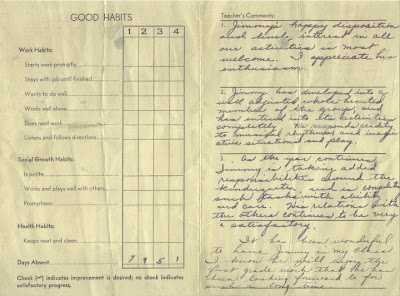 GOOD HABITS
1 2 3 4
Work Habits:
Starts work promptly
Stays with job until finished
Wants to do well
Works well alone
Does neat work
Listens and follows directions
Social Growth Habits:
Is polite
Works and plays well with others
Promptness
Health Habits:
Keeps neat and clean
Days Absent 7 9 5 1
Check (✓) indicates improvement is desired; no check indicates
satisfactory progress.
Teacher's Comments:
1. Jimmy's happy disposition
and lively interest in all
our activities is most
welcome. I appreciate his
enthusiasm.
2. Jimmy has developed into a
well adjusted whole hearted
member of the group and
has entered into its activities
completely. He responds readily
to musical rhythms and
situations and play.
3. As the year continues
Jimmy is taking added
responsibilities around the
kindergarten, and is completing
such tasks with ability
and care. His relations with
the others continues to be very
satisfactory.
It has been wonderful
to have Jimmy in my class
I know he will enjoy the
first grade work that he has
been looking forward to for
such a long time.